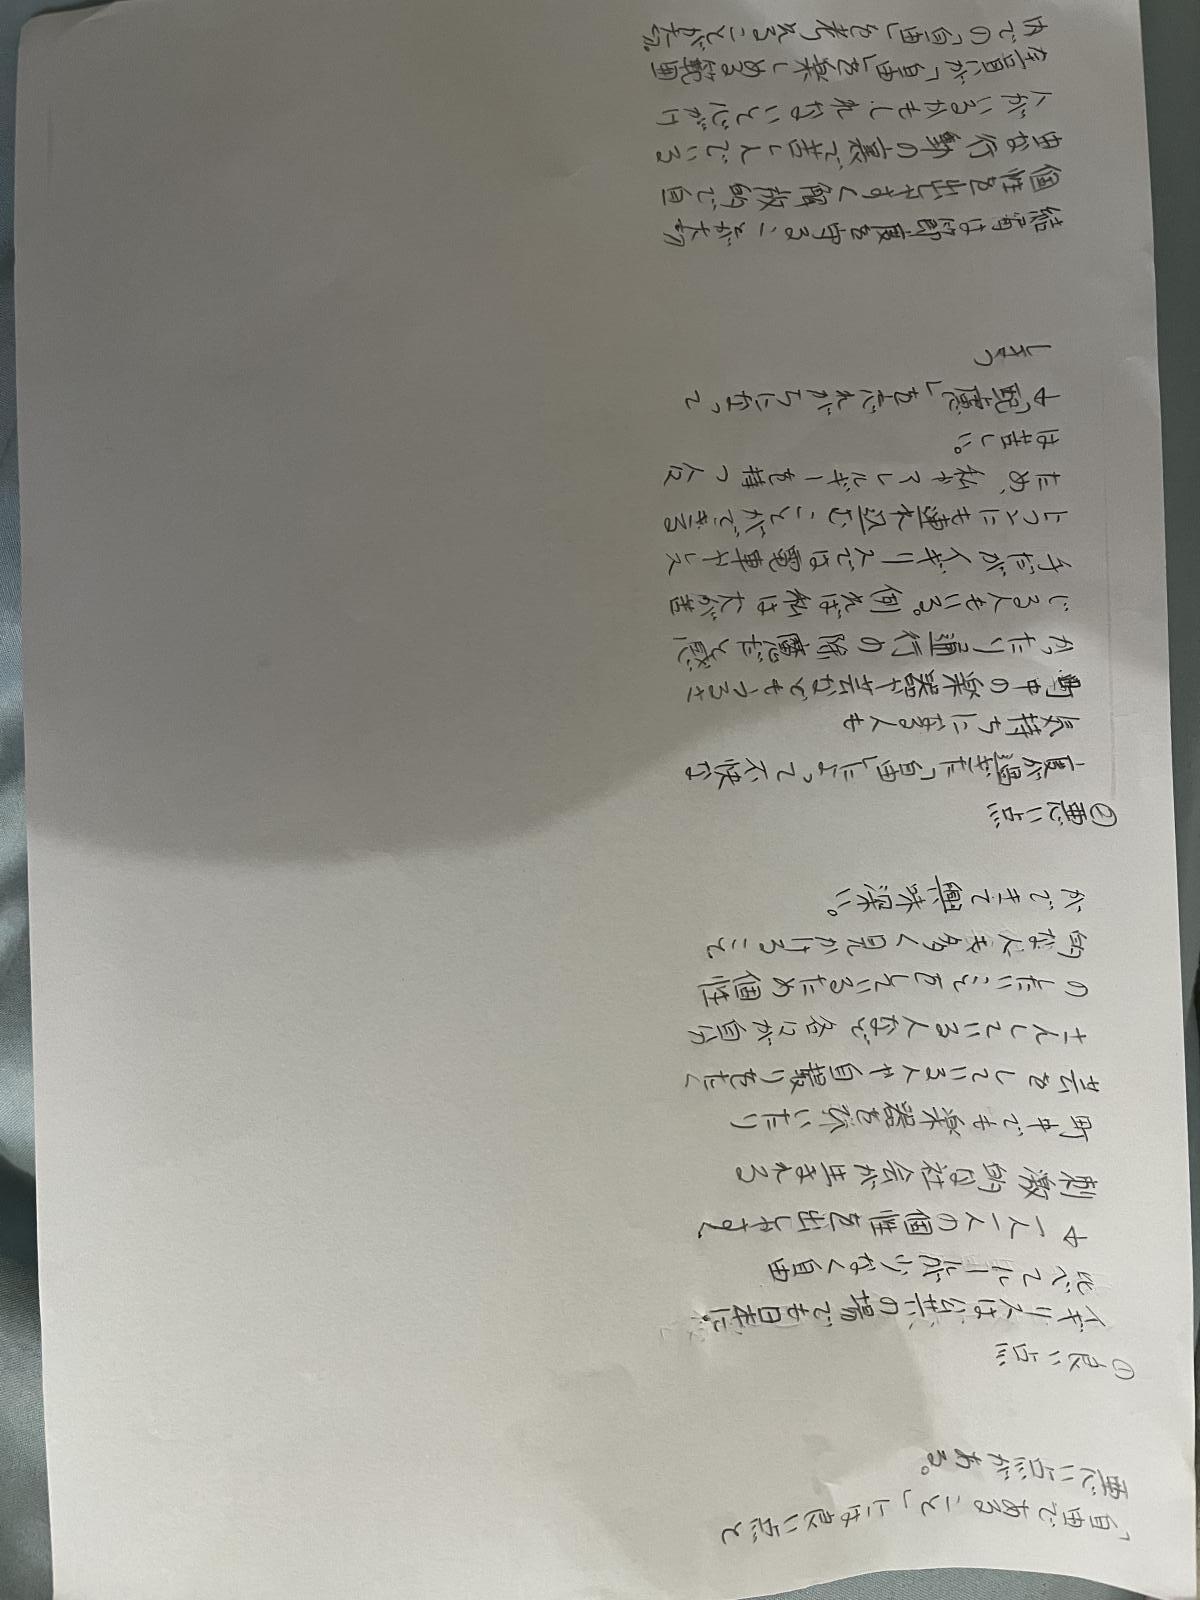 「自由であること」には良い点と
悪い点がある。
① 良い点
イギリスは公共の場でも日本に
比べてルールが少なく自由
→ 一人一人の個性を出しやすく
刺激的な社会が生まれる
町中でも楽器を弾いたり
芸をしている人や自撮りをたく
さんしている人など各々が自分
のしたいことをしているため個性
的な人を多く見かけること
ができて興味深い。
② 悪い点
度が過ぎた「自由」によって不快な
気持ちになる人も
町中の楽器や芸などもうるさ
かったり通行の邪魔だと感
じる人もいる。例えば私は犬が苦
手だがイギリスでは電車やレス
トランにも連れ込むことができる
ため、私やアレルギーを持つ人
は苦しい。
→「配慮」を忘れがちになって
しまう
結局は節度を守ることが大切
個性を出しやすく解放的で自
由な行動の裏で苦しんでいる
人がいるかもしれないと心がけ
全員が「自由」を楽しめる範囲
内での「自由」を考えることが大切。